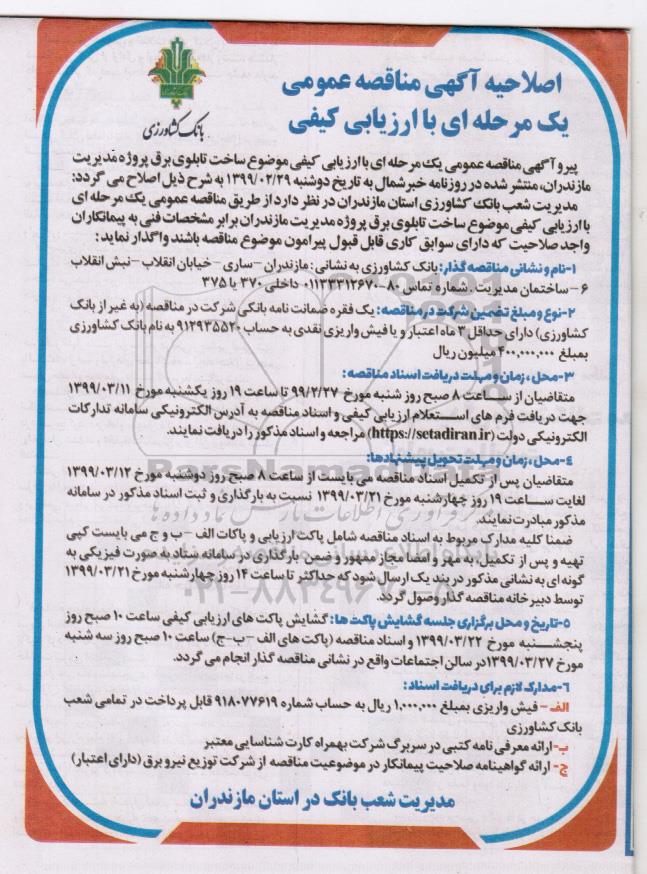 اصلاحیه آگهی مناقصه عمومی
یک مرحله ای با ارزیابی کیفی
بانک کشاورزی
پیرو آگهی مناقصه عمومی یک مرحله ای با ارزیابی کیفی موضوع ساخت تابلوی برق پروژه مدیریت
مازندران، منتشر شده در روزنامه خبر شمال به تاریخ دوشنبه ۱۳۹۹/۰۲/۲۹ به شرح ذیل اصلاح می گردد:
مدیریت شعب بانک کشاورزی استان مازندران در نظر دارد از طریق مناقصه عمومی یک مرحله ای
با ارزیابی کیفی موضوع ساخت تابلوی برق پروژه مدیریت مازندران برابر مشخصات فنی به پیمانکاران
واجد صلاحیت که دارای سوابق کاری قابل قبول پیرامون موضوع مناقصه باشند واگذار نماید:
۱-نام و نشانی مناقصه گذار: بانک کشاورزی به نشانی: مازندران -ساری - خیابان انقلاب - نبش انقلاب
۶ - ساختمان مدیریت. شماره تماس ۸۰-۰۱۱۳۳۳۱۲۶۷۰ داخلی ۳۷۰ یا ۳۷۵
۲-نوع و مبلغ تضمین شرکت در مناقصه: یک فقره ضمانت نامه بانکی شرکت در مناقصه (به غیر از بانک
کشاورزی) دارای حداقل ۳ ماه اعتبار و یا فیش واریزی نقدی به حساب ۹۱۲۹۳۵۵۲۰ به نام بانک کشاورزی
بمبلغ ۴۰۰,۰۰۰,۰۰۰ میلیون ریال
۳-محل، زمان و مهلت دریافت اسناد مناقصه:
متقاضیان از ســاعت ۸ صبح روز شنبه مورخ ۹۹/۲/۲۷ تا ساعت ۱۹ روز یکشنبه مورخ ۱۳۹۹/۰۳/۱۱
جهت دریافت فرم های اســتعلام ارزیابی کیفی و اسناد مناقصه به آدرس الکترونیکی سامانه تدارکات
الکترونیکی دولت (https://setadiran.ir) مراجعه و اسناد مذکور را دریافت نمایند.
۴-محل، زمان و مهلت تحویل پیشنهادها:
متقاضیان پس از تکمیل اسناد مناقصه می بایست از ساعت ۸ صبح روز دوشنبه مورخ ۱۳۹۹/۰۳/۱۲
لغایت ســاعت ۱۹ روز چهارشنبه مورخ ۱۳۹۹/۰۳/۲۱ نسبت به بارگذاری و ثبت اسناد مذکور در سامانه
مذکور مبادرت نمایند.
ضمنا کلیه مدارک مربوط به اسناد مناقصه شامل پاکت ارزیابی و پاکات الف -ب و ج می بایست کپی
تهیه و پس از تکمیل، به مهر و امضا مجاز ممهور و ضمن بارگذاری در سامانه ستاد به صورت فیزیکی به
گونه ای به نشانی مذکور در بند یک ارسال شود که حداکثر تا ساعت ۱۴ روز چهارشنبه مورخ ۱۳۹۹/۰۳/۲۱
توسط دبیرخانه مناقصه گذار وصول گردد.
۵-تاریخ و محل برگزاری جلسه گشایش پاکت ها: گشایش پاکت های ارزیابی کیفی ساعت ۱۰ صبح روز
پنجشــنبه مورخ ۱۳۹۹/۰۳/۲۲ و اسناد مناقصه (پاکت های الف -ب-ج) ساعت ۱۰ صبح روز سه شنبه
مورخ ۱۳۹۹/۰۳/۲۷ در سالن اجتماعات واقع در نشانی مناقصه گذار انجام می گردد.
۶-مدارک لازم برای دریافت اسناد:
الف - فیش واریزی بمبلغ ۱,۰۰۰,۰۰۰ ریال به حساب شماره ۹۱۸۰۷۷۶۱۹ قابل پرداخت در تمامی شعب
بانک کشاورزی
ب- ارائه معرفی نامه کتبی در سربرگ شرکت بهمراه کارت شناسایی معتبر
ج- ارائه گواهینامه صلاحیت پیمانکار در موضوعیت مناقصه از شرکت توزیع نیرو برق (دارای اعتبار)
مدیریت شعب بانک در استان مازندران